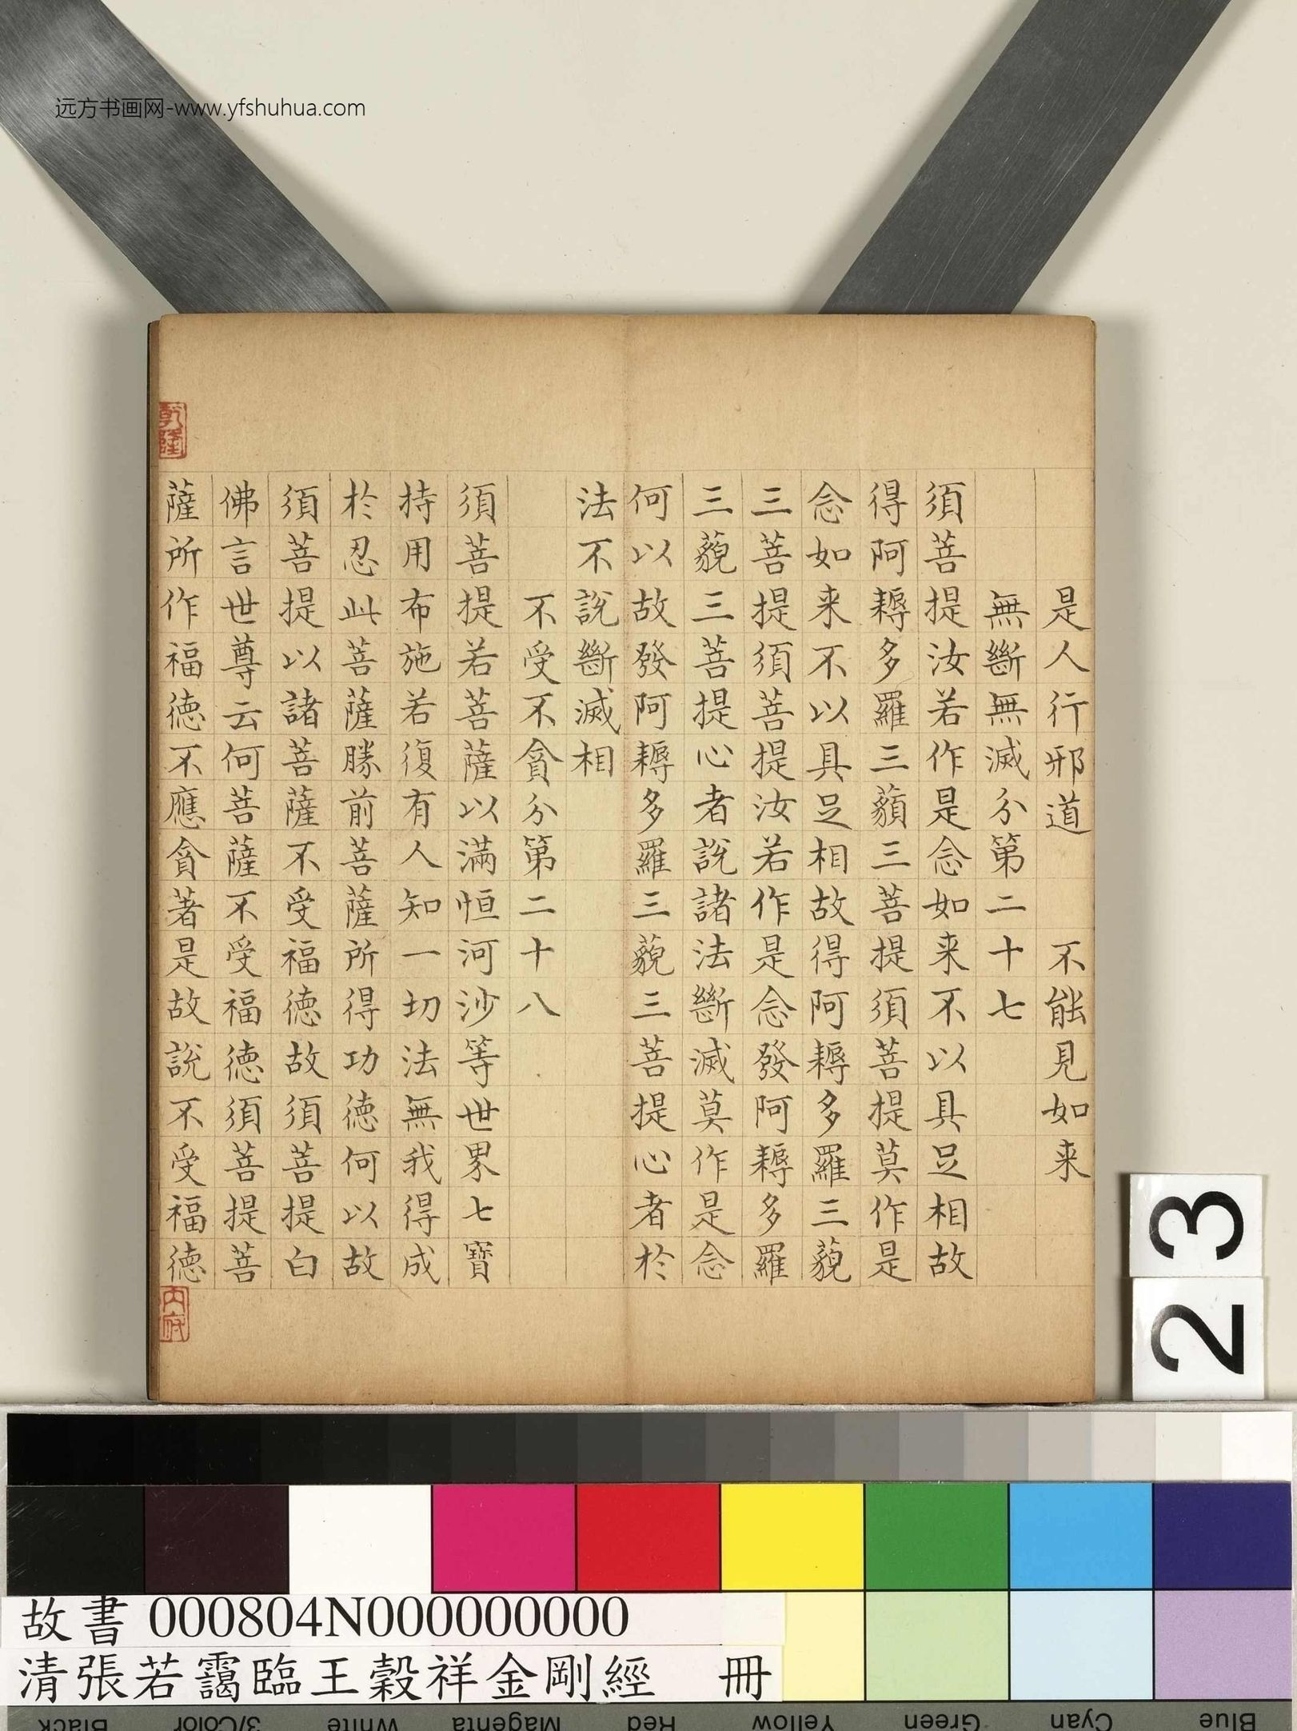 远方书画网-www.yfshuhua.com
是人行邪道 不能見如来
無斷無滅分第二十七
須菩提汝若作是念如来不以具足相故
得阿耨多羅三藐三菩提須菩提莫作是
念如来不以具足相故得阿耨多羅三藐
三菩提須菩提汝若作是念發阿耨多羅
三藐三菩提心者說諸法斷滅莫作是念
何以故發阿耨多羅三藐三菩提心者於
法不說斷滅相
不受不貪分第二十八
須菩提若菩薩以滿恒河沙等世界七寶
持用布施若復有人知一切法無我得成
於忍此菩薩勝前菩薩所得功德何以故
須菩提以諸菩薩不受福德故須菩提白
佛言世尊云何菩薩不受福德須菩提菩
薩所作福德不應貪著是故說不受福德
乾隆
內府
23
故書 000804N000000000
清張若靄臨王穀祥金剛經 冊
Black 3/Color White Magenta Red Yellow Green Cyan Blue